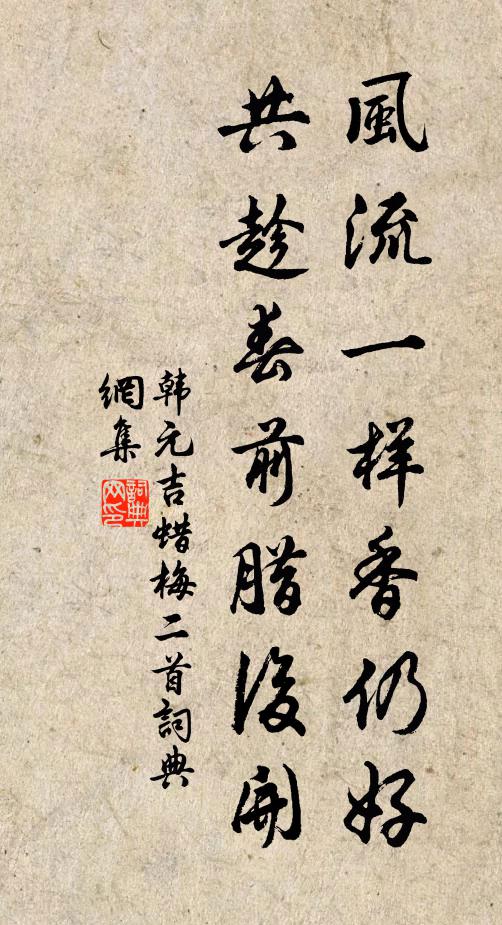 風流一样香仍好
共趁春前腊後開
韩元吉蜡梅二首詞典
網集
詞典
网印